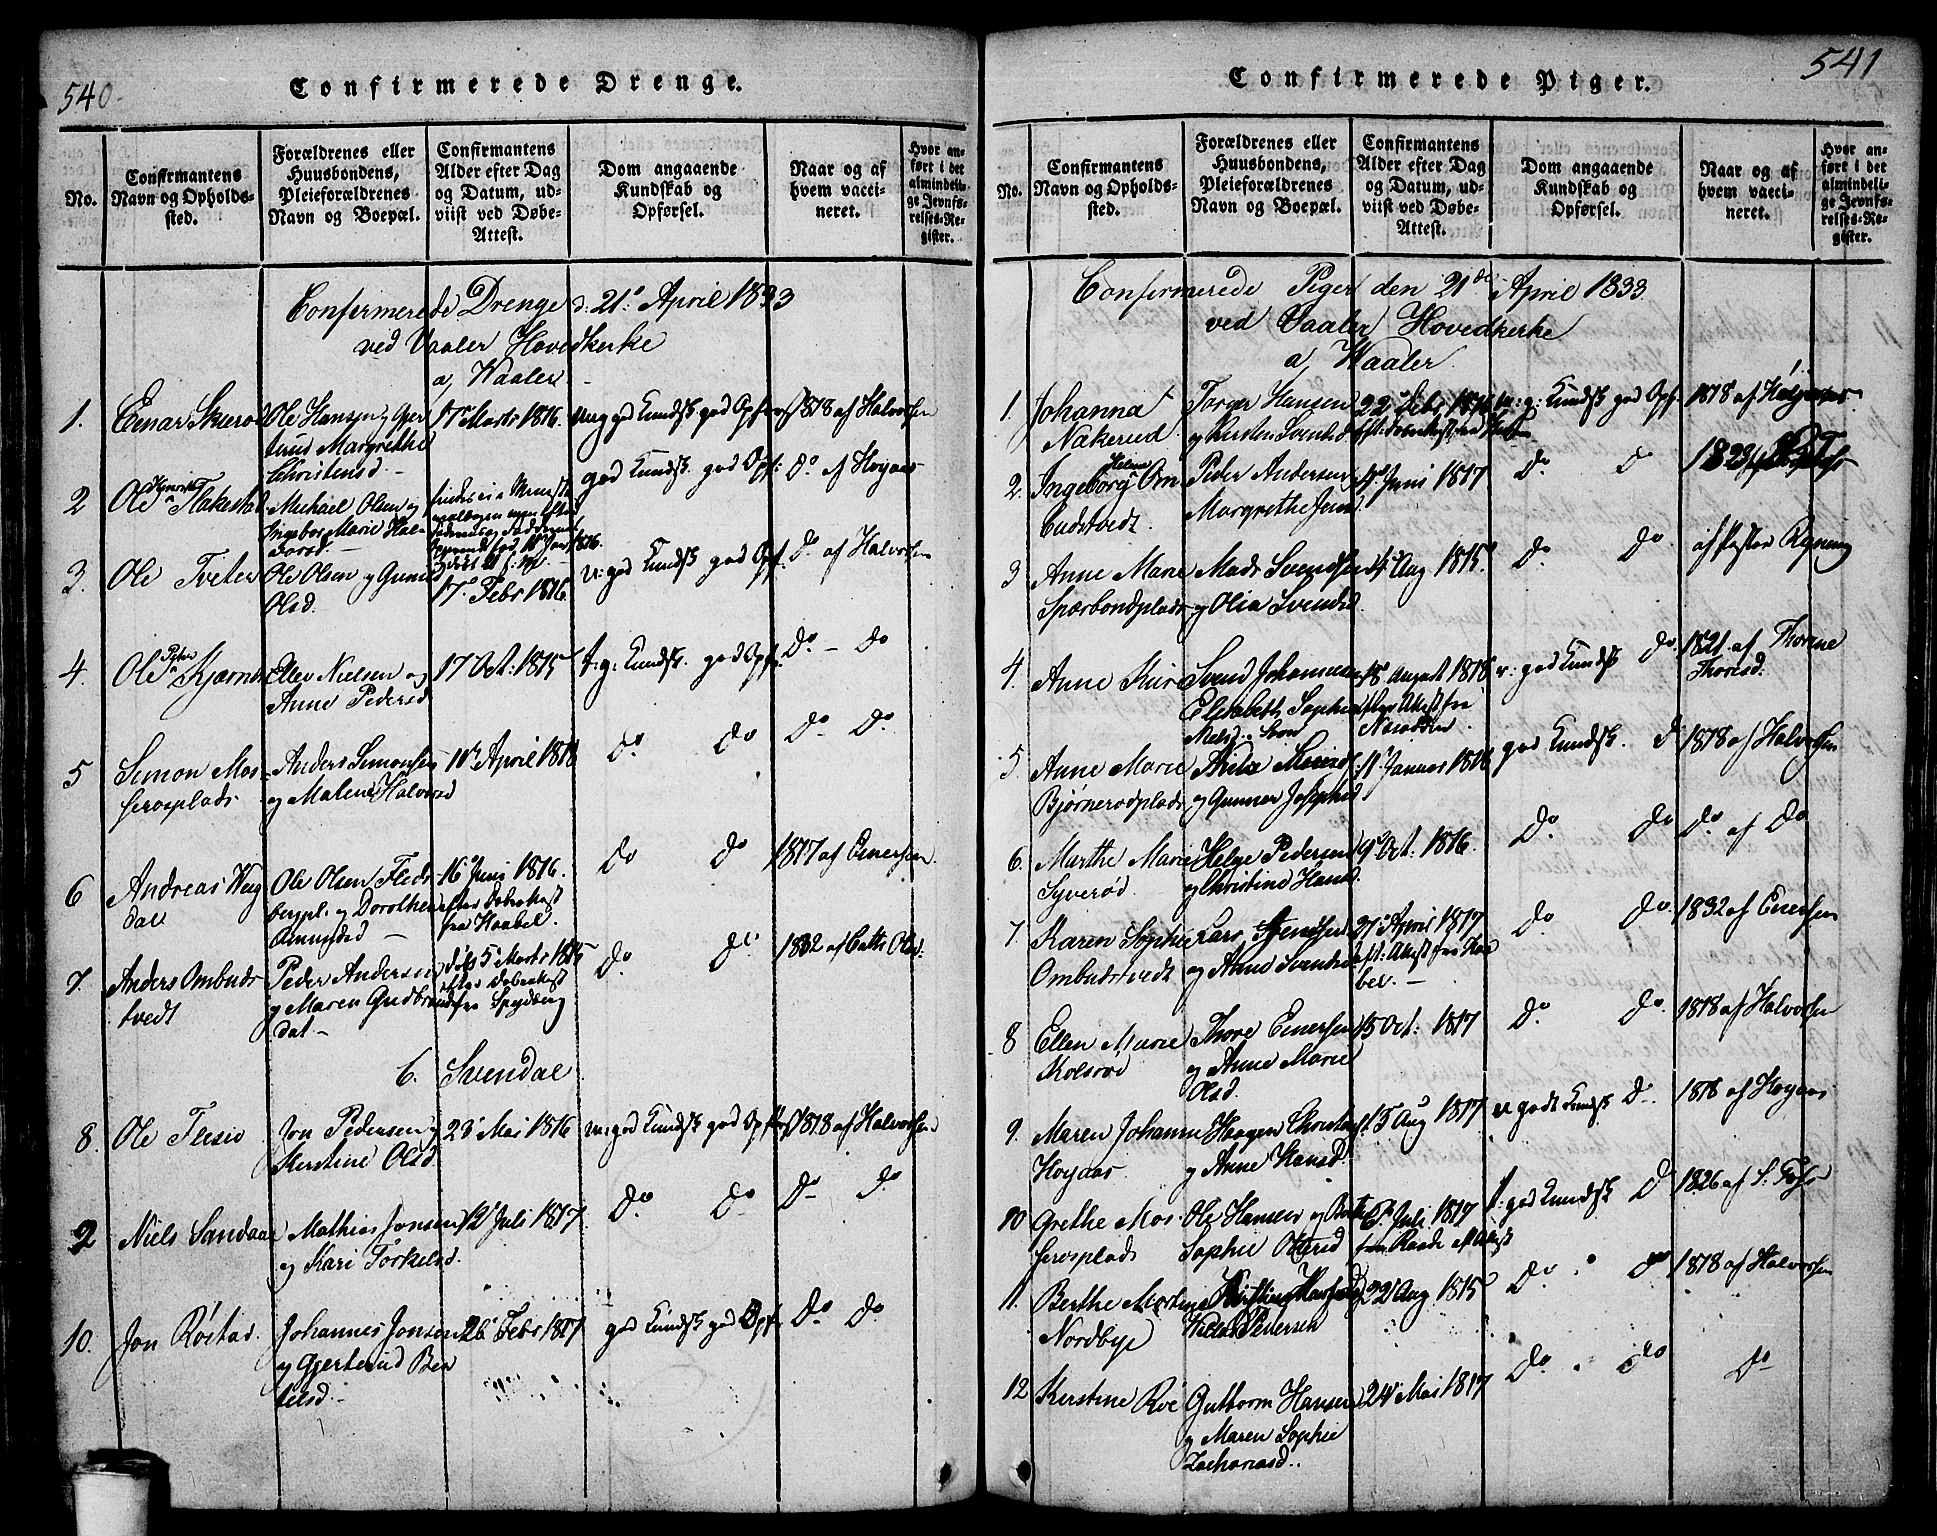 540.
Confirmerede Drenge.
No.
Confirmantens
Navn og Opholds-
sted.
Forældrenes eller
Huusbondens,
Pleieforældrenes
Navn og Boepæl.
Confirmantens
Alder efter Dag
og Datum, ud-
viist ved Døbe-
Attest.
Dom angaaende
Kundskab og
Opførsel.
Naar og af
hvem vacci-
neret.
Hvor an-
ført i det
almindeli-
ge Jevnfø-
relses-Re-
gister.
Confirmerede Drenge d: 21. April 1833
ved Vaaler Hovedkerke
a, Waaler.
1.
Einar
Ole Hansen og Gjer
trud Margrethe
Christensd
17 Marts 1816.
god Kundsk god Opførs
1818 af Halvorsen
2
Ole Flakestad
Michael Olsen og
Ingebor Marie Hal
vorsd.
god Kundsk god Opf:
Do af Hoyaas
3.
Ole Tveter
Ole Olsen og Gunild
Olsd.
17 Febr 1816.
v: god Kundsk god Opf.
Do af Halvorsen
4.
Ole Peter Kjærnes
Ellev Nielsen og
Anne Pedersd
17 Oct: 1815
T: g: Kundsk. god Opf.
Do - Do
5
Simon Mos
serosplads
Anders Simonsen
og Malene Halvorsd
10 April 1818
Do Do
Do Do
6
Andreas Wug
dal
Ole Olsen Fleds
bergpl. og Dorothea
Amundsd
16 Juni 1816.
efter Døbeattest
fra Haabel.
Do Do
1817 af Enersen.
7.
Anders Ombuds
tvedt
Peder Andersen
og Maren Gudbrands
dat
5 Marts 1815
efter Døbeattest
fra Spydberg
Do. Do
1832 af Cath: Olsd:
6. Svendal
8.
Ole Flesio
Jon Pedersen og
Kerstine Olsd.
23 Mai 1816
m: god Kundsk god Opførs
1818 af Halvorsen
9
Niels Sandaa
Mathias Jonsen
og Kari Torkelsd.
12 Juli 1817.
Do Do
Do Do
10.
Jon Röstad.
Johannes Jonsen
og Gjertrud Ber
telsd.
26 Febr 1817
god Kundsk god Opf.
Do Do
541
Confirmerede Piger.
No.
Confirmantens
Navn og Opholds-
sted.
Forældrenes eller
Huusbondens,
Pleieforældrenes
Navn og Boepæl.
Confirmantens
Alder efter Dag
og Datum, ud-
viist ved Døbe-
Attest.
Dom angaaende
Kundskab og
Opførsel.
Naar og af
hvem vacci-
neret.
Hvor an-
ført i det
almindeli-
ge Jevnfø-
relses-Re-
gister.
Confirmerede Piger den 21de April 1833.
ved Vaaler Hovedkerke
a, Waaler.
1.
Johanna
Nakerud
Torger Hansen
og Kersten Svendsd
22 Febr. 1816
g: Kundsk god Opf.
1818 af
2.
Ingeborg Helene Om
budstvedt.
Peder Andersen
Margrethe Jensd
Juni 1817
Do. Do
1823
3
Anne Marie
Spærbondplads
Mads Svendsen
og Olia Svendsd
Aug 1815.
Do. Do
af Pastor Rynning
4.
Anne Kure
Svend Johannesen
Elisabeth Sophia
18 August 1818
v: god Kundsk Do.
1821 af Thorine
Thoresd.
5.
Anne Marie
Bjørnerodplads
og Gunner Josephsd
11 Januar 1816
god Kundsk.
1818 af Halvorsen
6.
Marthe Marie
Syverød.
Helge Pedersen
og Christine Hansd.
9 Oct: 1816.
Do Do
Do af Do
7.
Karen Sophie
Ombudstvedt
Lars Svendsen
og Anne Svendsd
27 April 1817
eft: Attest fra Haa
bel.
Do. Do.
1832 af Enersen
8
Ellen Marie
Kolsrød
Thore Enersen
og Anne Marie
Olsd.
15 Oct: 1817
Do. Do.
1818 af Halvorsen
9.
Maren Johanne
Hoyaas
Haagen Christens
og Anne Hansd.
15 Aug 1817
v godt Kundsk Do.
1818 af Hoyaas
10
Grethe Mos
serosplads
Ole Hansen og
Sophie Ottersd
6 Juli 1817
fra Raade eft Attest
T: god Kundsk Do
1826 af S. Foss
11.
Berthe Martine
Nordbye
Niels Pedersen
22 Aug. 1815
Do. Do
1818 af Halvorsen
12
Kerstine Röe
Guttorm Hansen
og Maren Sophie
Zachariasd.
24 Mai 1817
Do Do
Do